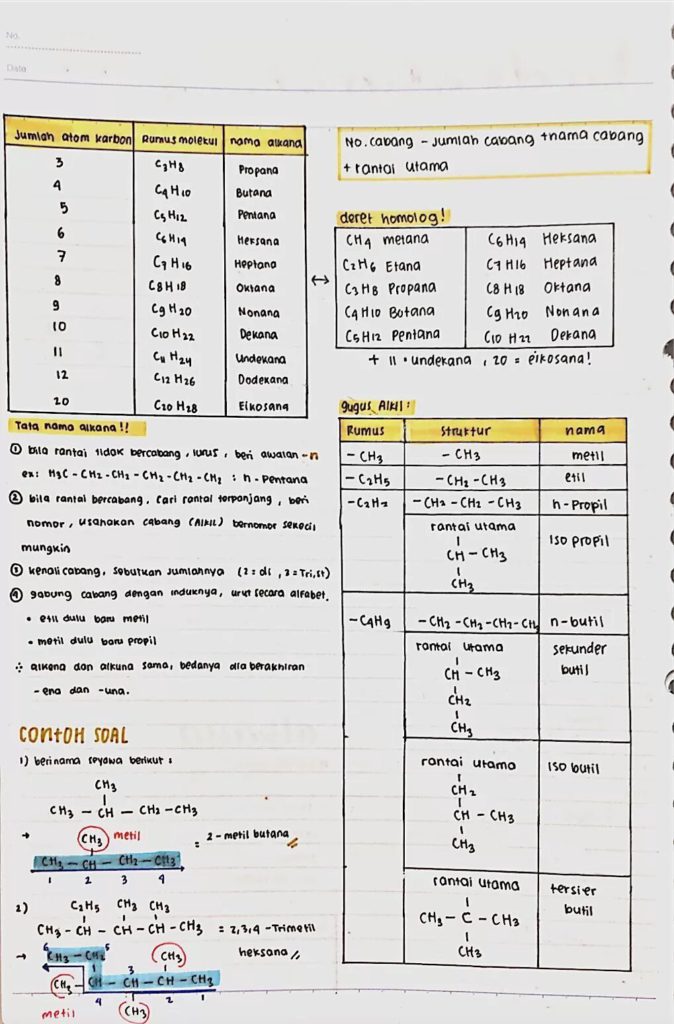 No.
Date
Jumlah atom karbon | Rumus molekul | nama alkana
3 | C3H8 | Propana
4 | C4H10 | Butana
5 | C5H12 | Pentana
6 | C6H14 | Heksana
7 | C7H16 | Heptana
8 | C8H18 | Oktana
9 | C9H20 | Nonana
10 | C10H22 | Dekana
11 | C11H24 | Undekana
12 | C12H26 | Dodekana
20 | C20H28 | Eikosana
No. cabang - jumlah cabang + nama cabang
+ rantai utama
deret homolog!
CH4 metana | C6H14 Heksana
C2H6 Etana | C7H16 Heptana
C3H8 Propana | C8H18 Oktana
C4H10 Botana | C9H20 Nonana
C5H12 Pentana | C10H22 Dekana
↔
+ 11 • undekana , 20 = eikosana!
Tata nama alkana!!
① bila rantai tidak bercabang, lurus, beri awalan -n
ex: H3C - CH2 - CH2 - CH2 - CH2 - CH2 : n - Pentana
② bila rantai bercabang. cari rantai terpanjang, beri
nomor, usahakan cabang (Alkil) bernomor sekecil
mungkin
③ kenali cabang, sebutkan jumlahnya (2 = di , 3 = Tri,
④ gabung cabang dengan induknya, urut secara alfabet.
• etil dulu baru metil
• metil dulu baru propil
∴ alkena dan alkuna sama, bedanya dia berakhiran
-ena dan -una.
gugus Alkil :
Rumus | Struktur | nama
- CH3 | - CH3 | metil
- C2H5 | - CH2 - CH3 | etil
- CH2 - CH2 - CH3 | n - Propil
rantai utama
CH - CH3 | Iso propil
CH3
- C4H9 | - CH2 - CH2 - CH2 - CH3 | n - butil
rantai utama | sekunder
CH - CH3 | butil
CH2
CH3
rantai utama | Iso butil
CH2
CH - CH3
CH3
rantai utama | tersier
CH3 - C - CH3 | butil
CH3
CONTOH SOAL
1) beri nama senyawa berikut :
CH3
CH3 - CH - CH2 - CH3
→ CH3 metil = 2 - metil butana
CH3 - CH - CH2 - CH3
1 2 3 4
2) C2H5 CH3 CH3
CH3 - CH - CH - CH - CH3 = 2,3,4 - Trimetil
heksana
→ 6 5
CH3 - CH2 CH3
3
CH3 - CH - CH - CH - CH3
4 2 1
metil CH3